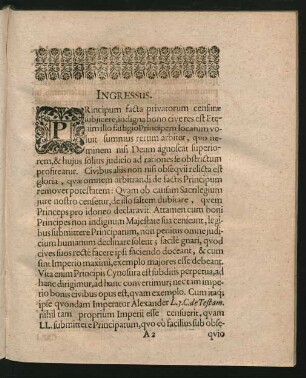 INGRESSUS.
PRincipum facta privatorum censuræ
subjicere, indagna bono cive res est. Ete-
nim illo fastigio Principem locatum vo-
luit summus rerum arbiter, quo ne-
minem nisi Deum agnoscat superio-
rem, & hujus solius judicio ad rationes se obstrictum
profiteatur. Civibus alia non nisi obsequii relicta est
gloria, quæ omnem arbitrandi de factis Principum
removet potestatem: Quam ob causam Sacrilegium
jure nostro censetur, de illo saltem dubitare, quem
Princeps pro idoneo declaravit. Attamen cum boni
Principes non indignum Majestate sua censeant, le-
gibus submittere Principatum, non penitus omne ju-
dicium humanum declinare solent; facile gnari, quod
cives suos recte facere ipsi faciendo doceant, & cum
sint Imperio maximi, exemplo majores esse debeant.
Vita enim Principis Cynosura est subditis perpetua, ad
hanc dirigimur, ad hanc convertimur, nec tam impe-
rio bonis civibus opus est, quam exemplo. Cum itaq;
ipse quondam Imperator Alexander L. 3. C. de Testam.
nihil tam proprium Imperii esse censuerit, quam
LL. submittere Principatum, quo eo facilius sub obse-
A 2
quio